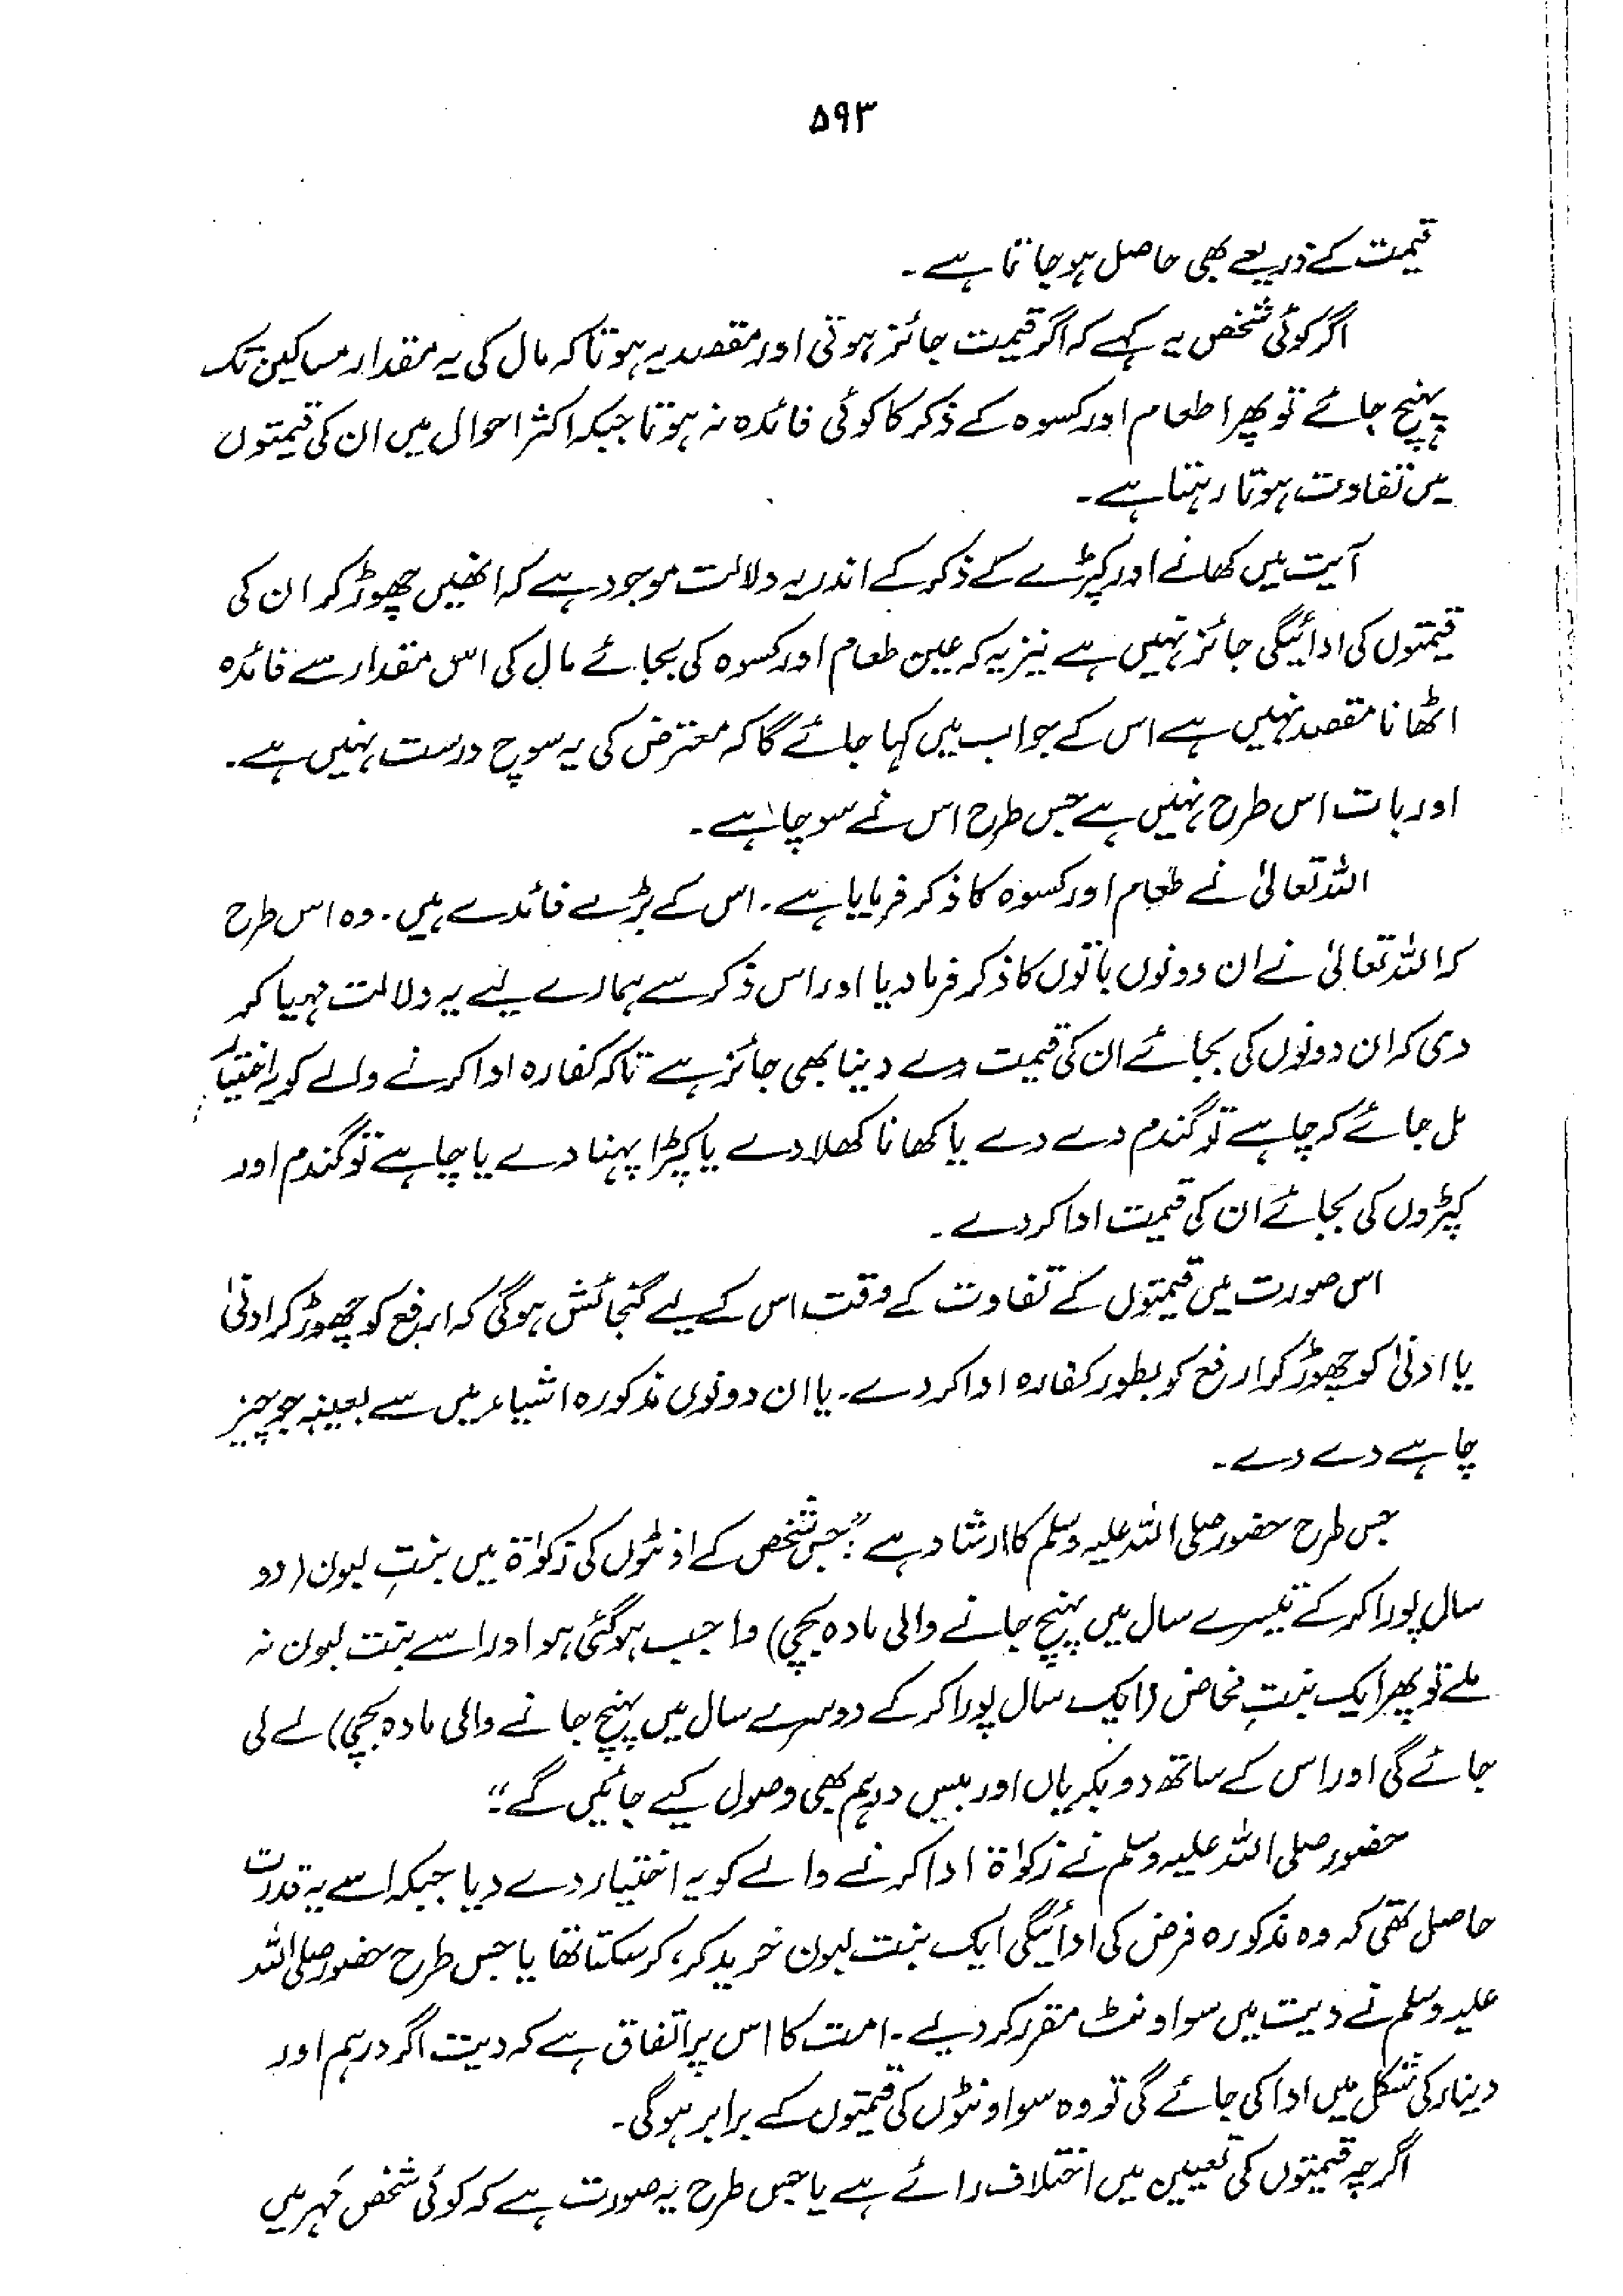 ۵۹۳
قیمت کے ذریعے بھی حاصل ہو جاتا ہے۔
اگر کوئی شخص یہ کہے کہ اگر قیمت جائز ہوتی اور مقصد یہ ہوتا کہ مال کی یہ مقدار مساکین تک
پہنچ جائے تو پھر اطعام اور کسوہ کے ذکر کا کوئی فائدہ نہ ہوتا جبکہ اکثر احوال میں ان کی قیمتوں
میں تفاوت ہوتا رہتا ہے۔
آیت میں کھانے اور کپڑے کے ذکر کے اندر یہ دلالت موجود ہے کہ انھیں چھوڑ کر ان کی
قیمتوں کی ادائیگی جائز نہیں ہے نیز یہ کہ عین طعام اور کسوہ کی بجائے مال کی اس مقدار سے فائدہ
اٹھانا مقصد نہیں ہے اس کے جواب میں کہا جائے گا کہ معترض کی یہ سوچ درست نہیں ہے۔
اور بات اس طرح نہیں ہے جس طرح اس نے سوچا ہے۔
اللہ تعالیٰ نے طعام اور کسوہ کا ذکر فرمایا ہے۔ اس کے بڑے فائدے ہیں۔ وہ اس طرح
کہ اللہ تعالیٰ نے ان دونوں باتوں کا ذکر فرما دیا اور اس ذکر سے ہمارے لیے یہ دلالت مہیا کر
دی کہ ان دونوں کی بجائے ان کی قیمت دے دینا بھی جائز ہے تاکہ کفارہ ادا کرنے والے کو یہ اختیار
مل جائے کہ چاہے تو گندم دے دے یا کھانا کھلا دے یا کپڑا پہنا دے یا چاہے تو گندم اور
کپڑوں کی بجائے ان کی قیمت ادا کر دے۔
اس صورت میں قیمتوں کے تفاوت کے وقت اس کے لیے گنجائش ہو گی کہ ارفع کو چھوڑ کر ادنیٰ
یا ادنیٰ کو چھوڑ کر ارفع کو بطور کفارہ ادا کر دے۔ یا ان دونوں مذکورہ اشیاء میں سے بعینہٖ جو چیز
چاہے دے دے۔
جس طرح حضور صلی اللہ علیہ وسلم کا ارشاد ہے: "جس شخص کے اونٹوں کی زکوٰۃ میں بنتِ لبون (دو
سال پورا کر کے تیسرے سال میں پہنچ جانے والی مادہ بچی) واجب ہو گئی ہو اور اسے بنت لبون نہ
ملے تو پھر ایک بنتِ مخاض (ایک سال پورا کر کے دوسرے سال میں پہنچ جانے والی مادہ بچی) لے لی
جائے گی اور اس کے ساتھ دو بکریاں اور بیس درہم بھی وصول کیے جائیں گے۔"
حضور صلی اللہ علیہ وسلم نے زکوٰۃ ادا کرنے والے کو یہ اختیار دے دیا جبکہ اسے یہ قدرت
حاصل تھی کہ وہ مذکورہ فرض کی ادائیگی ایک بنت لبون خرید کر، کر سکتا تھا یا جس طرح حضور صلی اللہ
علیہ وسلم نے دیت میں سو اونٹ مقرر کر دیے۔ امت کا اس پر اتفاق ہے کہ دیت اگر درہم اور
دینار کی شکل میں ادا کی جائے گی تو وہ سو اونٹوں کی قیمتوں کے برابر ہو گی۔
اگرچہ قیمتوں کی تعیین میں اختلاف رائے ہے یا جس طرح یہ صورت ہے کہ کوئی شخص مَہر میں